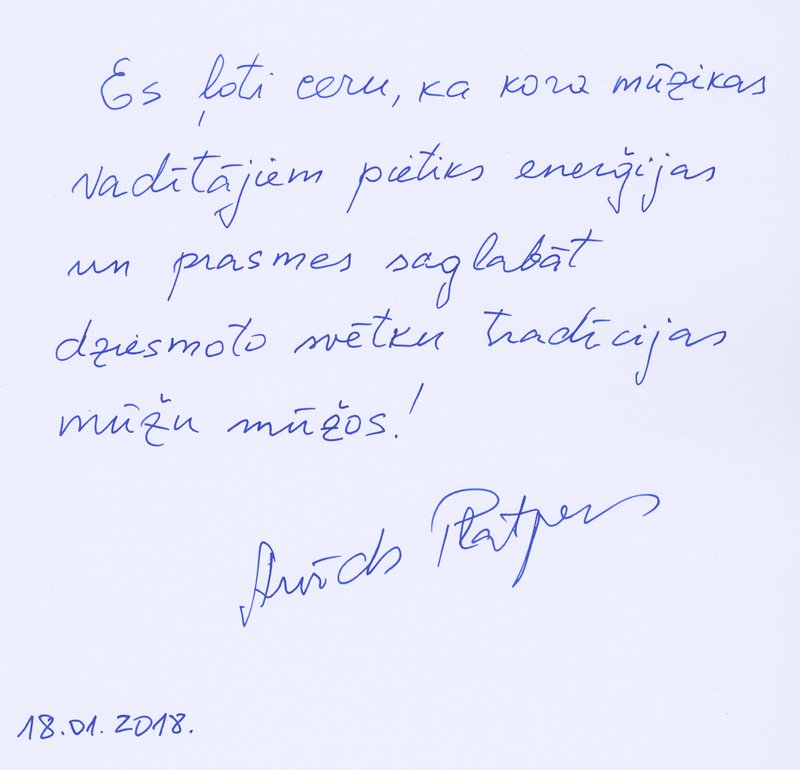 Es ļoti ceru, ka kora mūzikas
vadītājiem pietiks enerģijas
un prasmes saglabāt
dziesmoto svētku tradīcijas
mūžu mūžos!
Arvīds Platpers
18.01.2018.